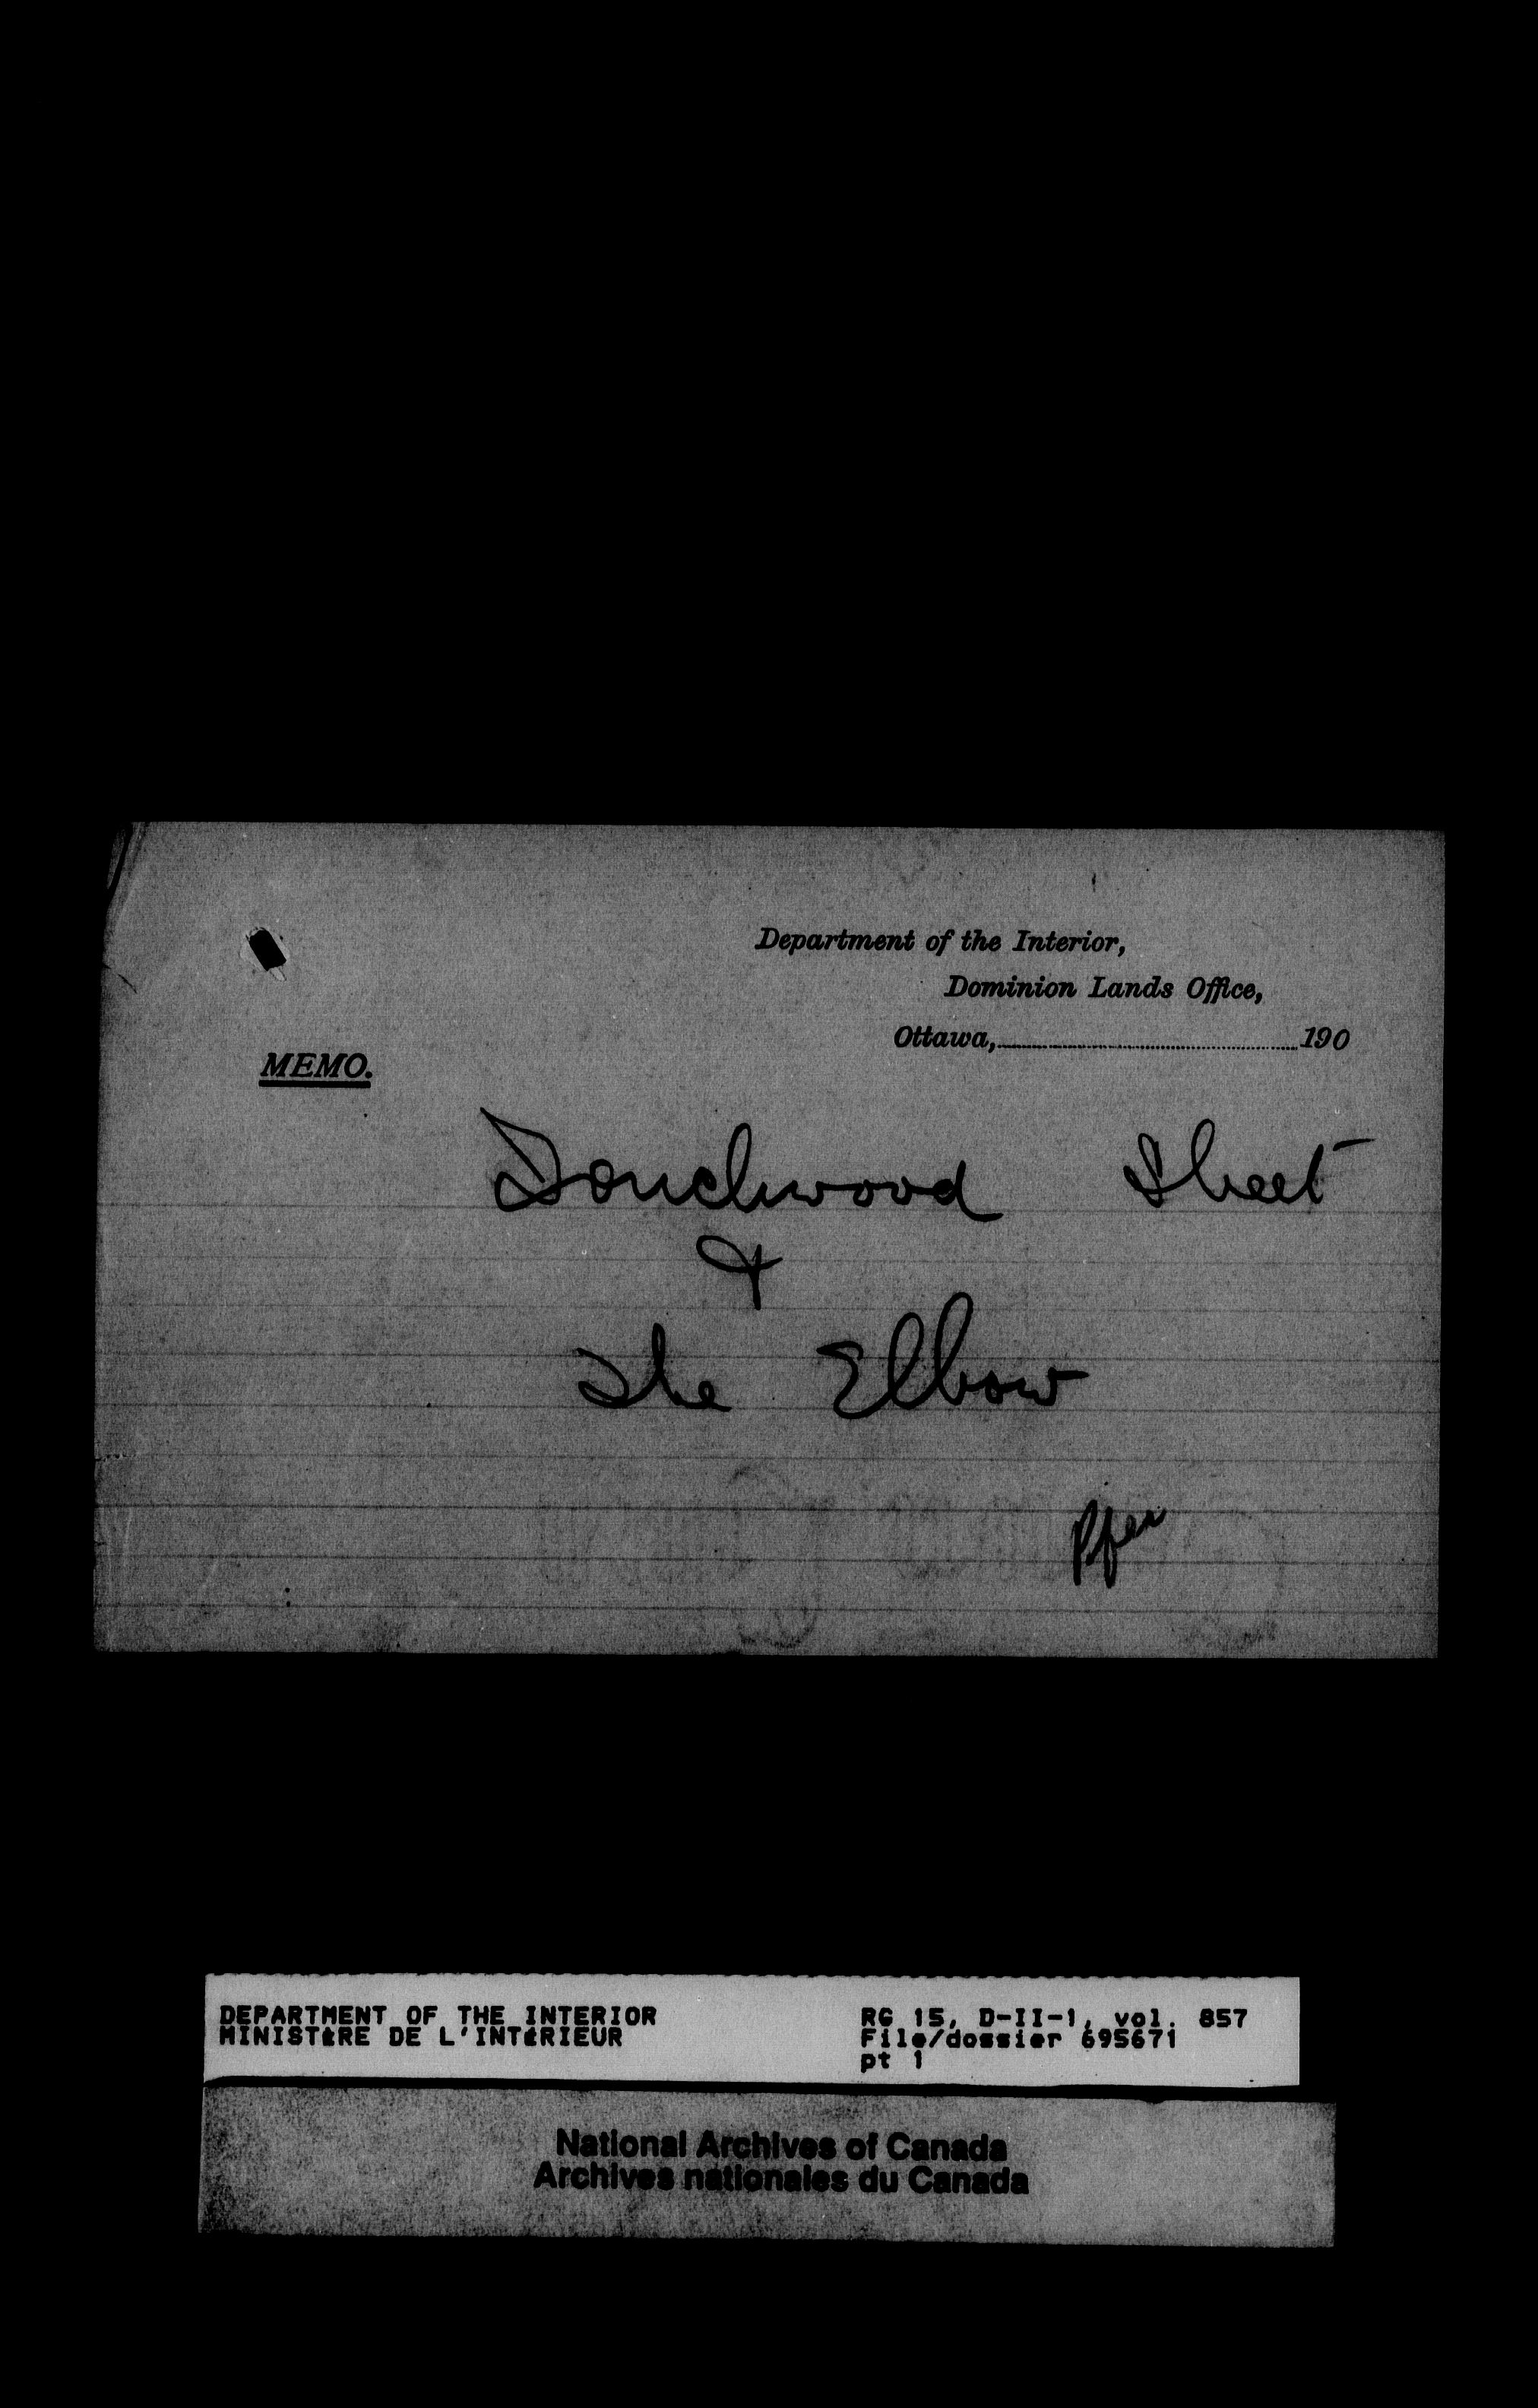 Department of the Interior,
Dominion Lands Office,
Ottawa, 190
MEMO.
Touchwood Sheet
&
The Elbow
DEPARTMENT OF THE INTERIOR
MINISTÈRE DE L'INTÉRIEUR
RG 15, D-II-1, vol. 857
File/dossier 695671
pt 1
National Archives of Canada
Archives nationales du Canada